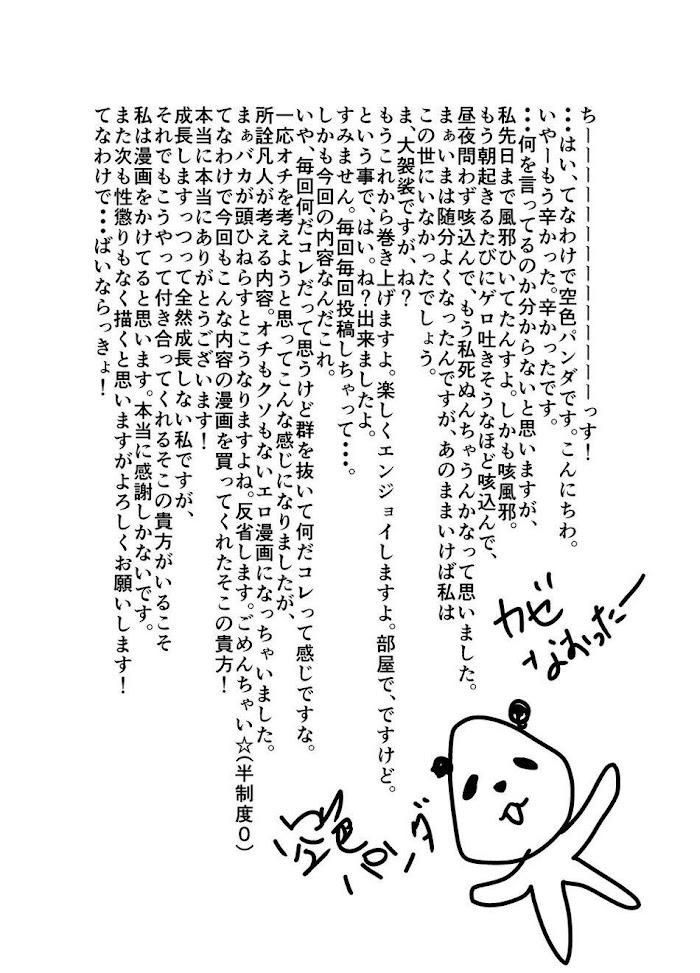 ちーーーーーーーーーーーっす！
・・はい、てなわけで空色パンダです。こんにちわ。
いやーもう辛かった。辛かったです。
・・何を言ってるのか分からないと思いますが、
私先日まで風邪ひいてたんすよ。しかも咳風邪。
もう朝起きるたびにゲロ吐きそうなほど咳込んで、
昼夜問わず咳込んで、もう私死ぬんちゃうんかなって思いました。
まぁいまは随分よくなったんですが、あのままいけば私は
この世にいなかったでしょう。
ま、大袈裟ですが、ね？
もうこれから巻き上げますよ。楽しくエンジョイしますよ。部屋で、ですけど。
という事で、はい。ね？出来ましたよ。
すみません。毎回毎回投稿しちゃって・・・。
しかも今回の内容なんだこれ。
いや、毎回何だコレだって思うけど群を抜いて何だコレって感じですな。
一応オチを考えようと思ってこんな感じになりましたが、
所詮凡人が考える内容。オチもクソもないエロ漫画になっちゃいました。
まぁバカが頭ひねらすとこうなりますよね。反省します。ごめんちゃい☆(半制度０)
てなわけで今回もこんな内容の漫画を買ってくれたそこの貴方！
本当に本当にありがとうございます！
成長しますっつって全然成長しない私ですが、
それでもこうやって付き合ってくれるそこの貴方がいるこそ
私は漫画をかけてると思います。本当に感謝しかないです。
また次も性懲りもなく描くと思いますがよろしくお願いします！
てなわけで・・ばいならっきょ！
カゼ
なおったー
空色パンダ